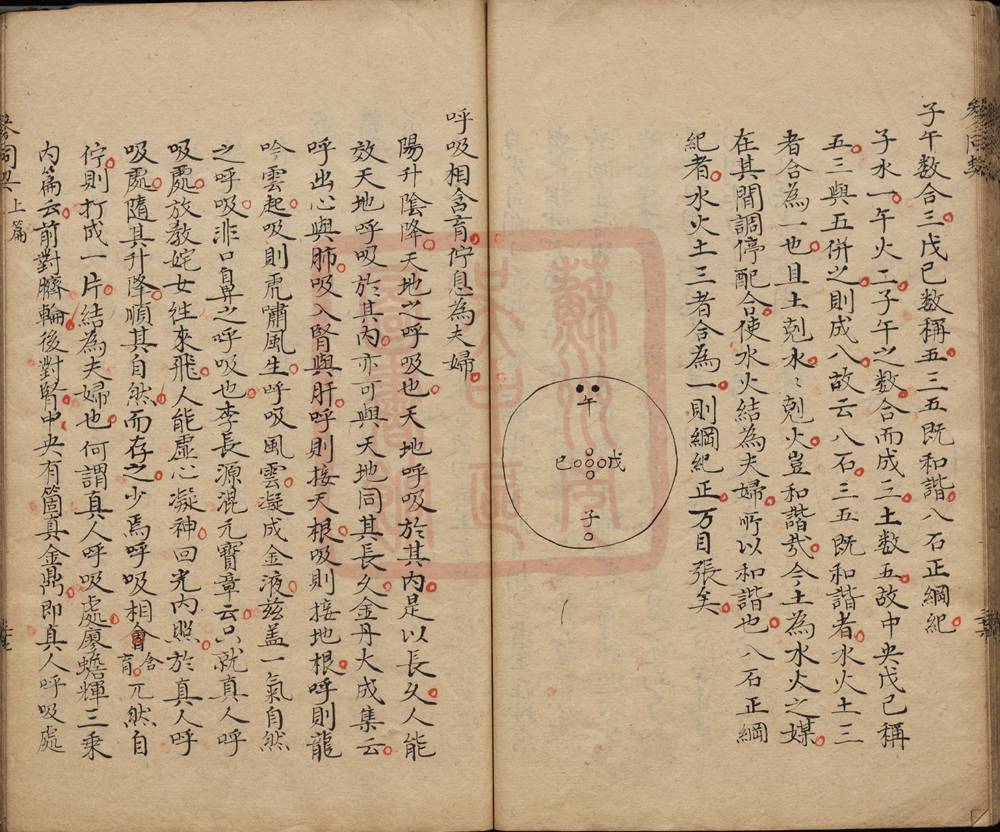 子午数合三戊已数稱五三五既和諧八石正綱紀
子水一午火二子午之数合而成三土数五故中央戊已稱
五三與五併之則成八故云八石三五既和諧者水火土三
者合為一也且土剋水〻剋火豈和諧㢤今土為水火之媒
在其間調停配合使水火結為夫婦所以和諧也八石正綱
紀者水火土三者合為一則綱紀正万目張矣
午
已 戊
子
呼吸相含育佇息為夫婦
陽升陰降天地之呼吸也天地呼吸於其内是以長久人能
效天地呼吸於其内亦可與天地同其長久金丹大成集云
呼出心與肺吸入腎與肝呼則接天根吸則接地根呼則龍
吟雲起吸則虎嘯風生呼吸風雲凝成金液玆盖一氣自然
之呼吸非口鼻之呼吸也李長源混元寶章云只就真人呼
吸處放教姹女徃來飛人能虚心凝神回光内照於真人呼
吸處隨其升降順其自然而存之少焉呼吸相含育兀然自
佇則打成一片結為夫婦也何謂真人呼吸處廖蟾輝三乘
内篇云前對臍輪後對腎中央有箇真金鼎即真人呼吸處
參同契上篇